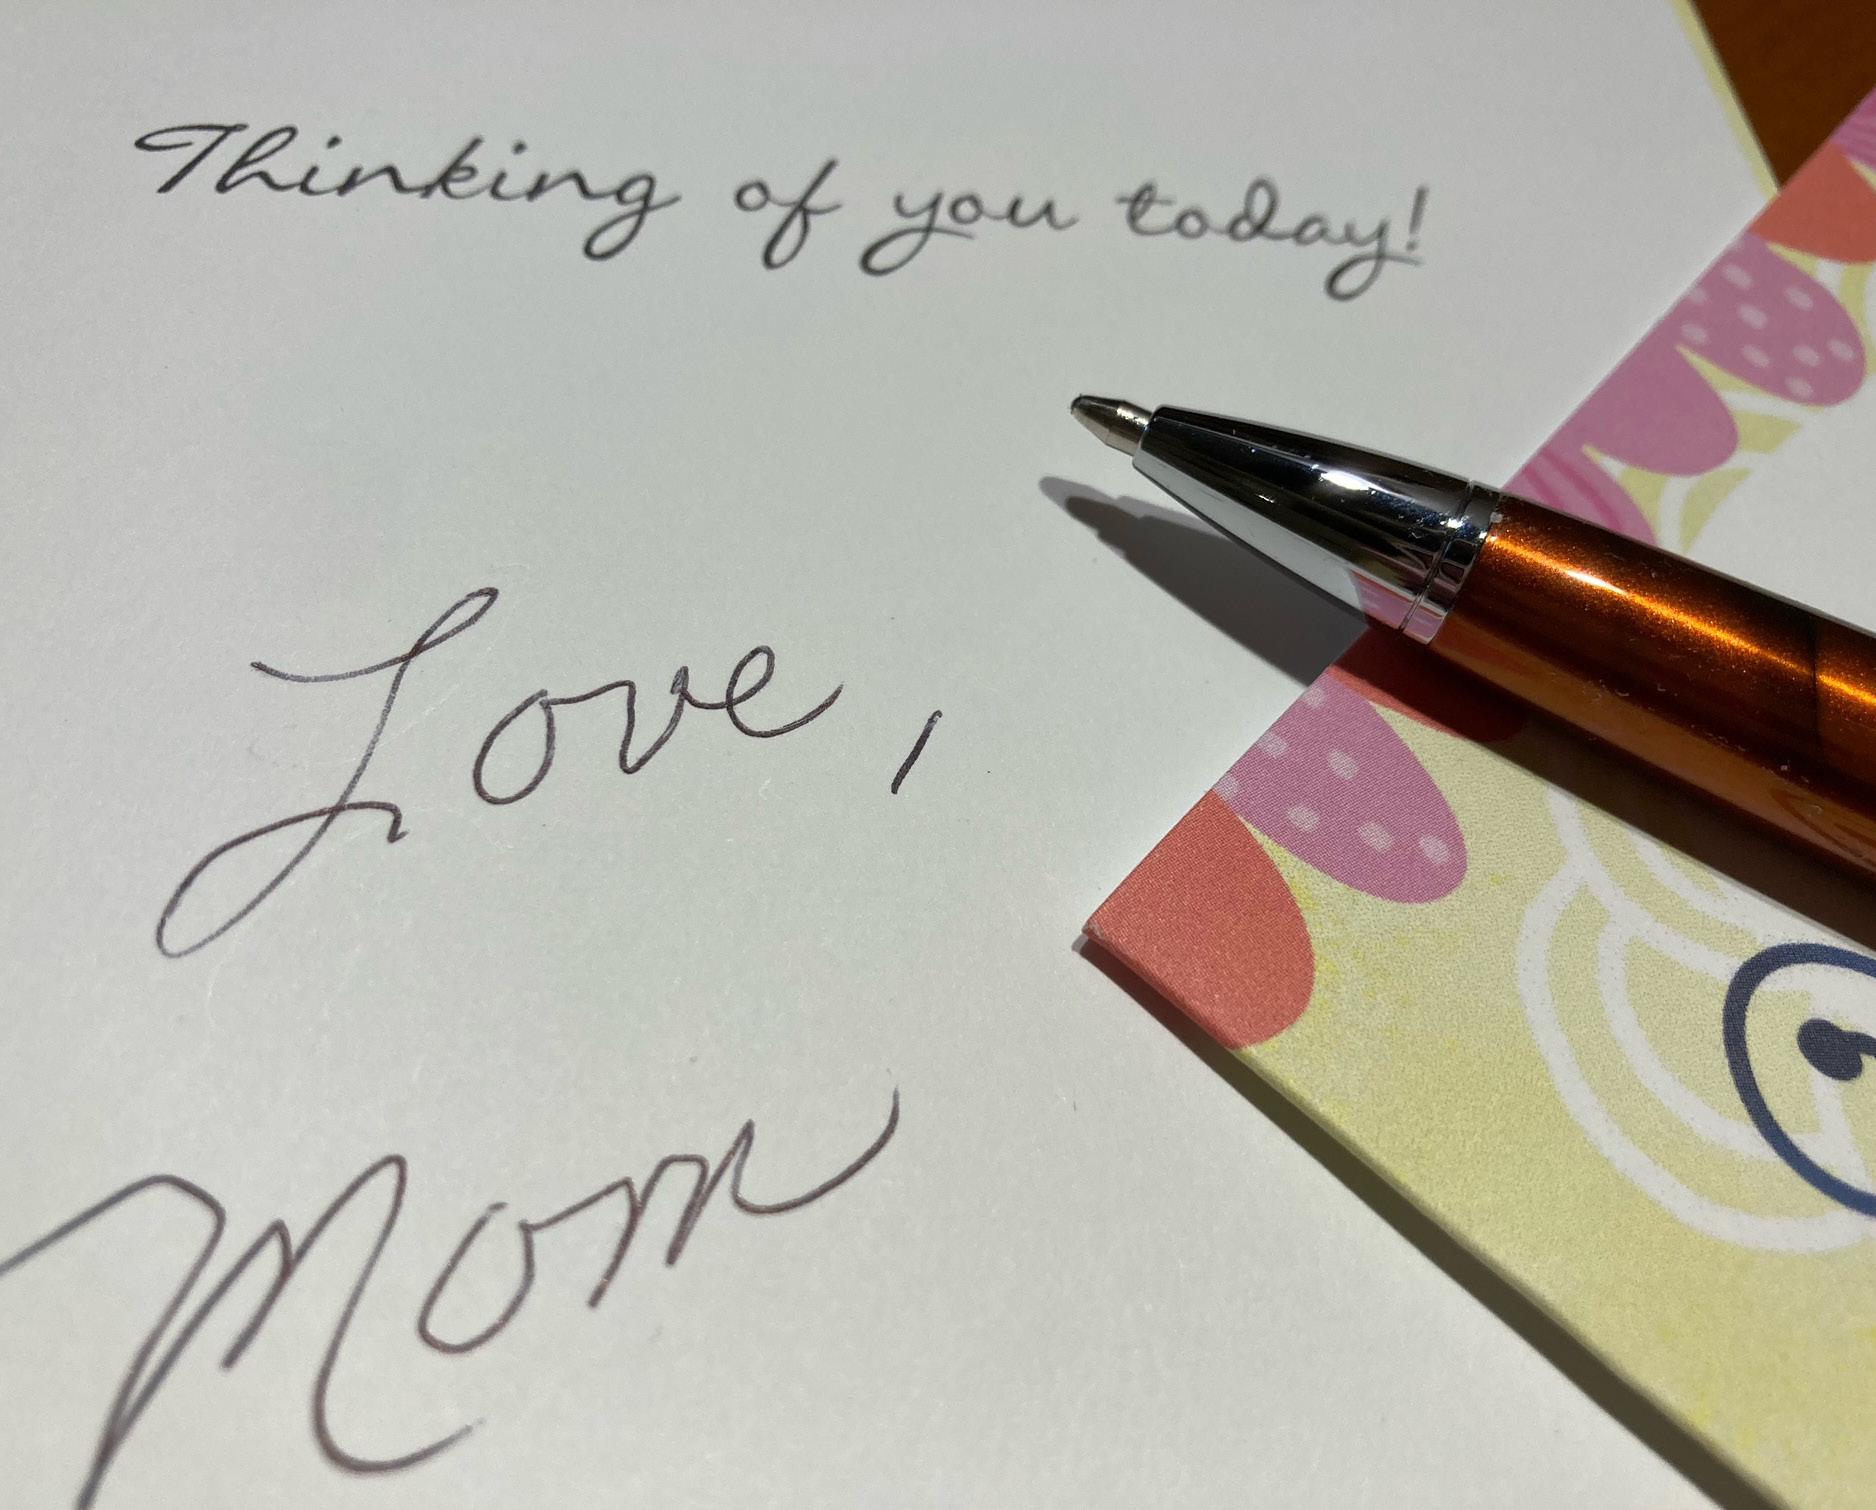 Thinking of you today!
Love,
Mom